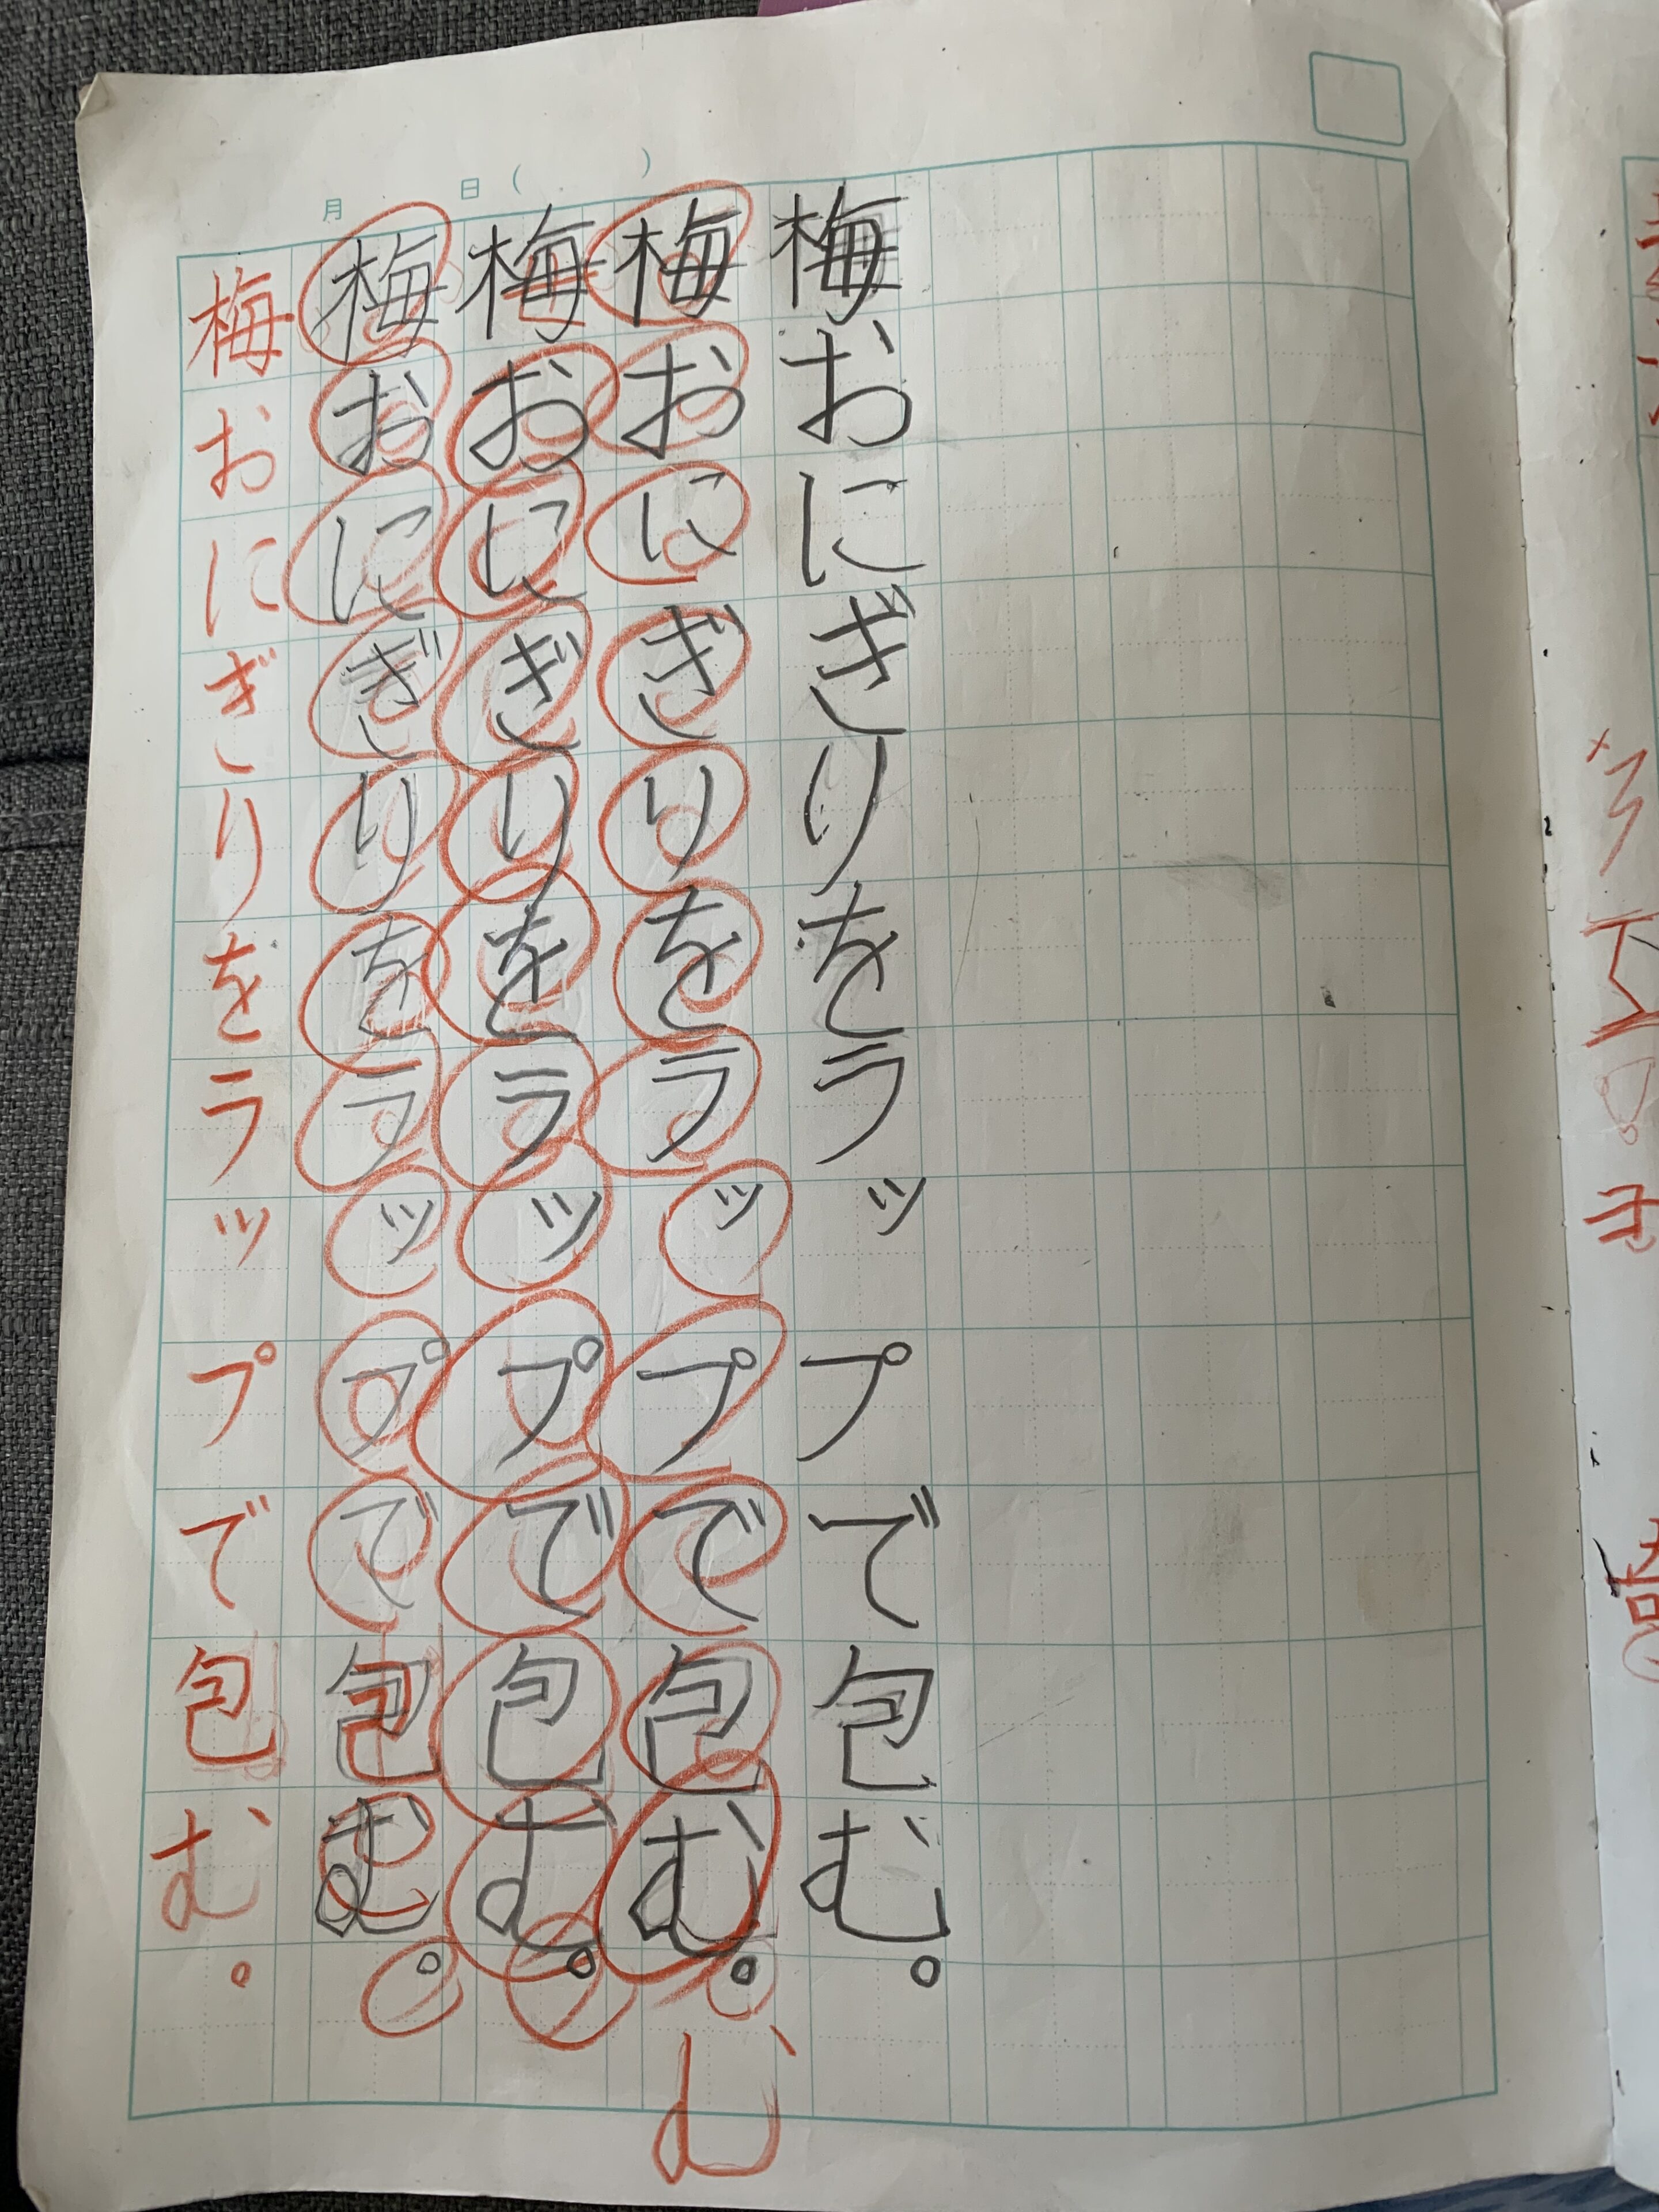 月 日( )
梅おにぎりをラップで包む。
梅おにぎりをラップで包む。
梅おにぎりをラップで包む。
梅おにぎりをラップで包む。
梅おにぎりをラップで包む。
む